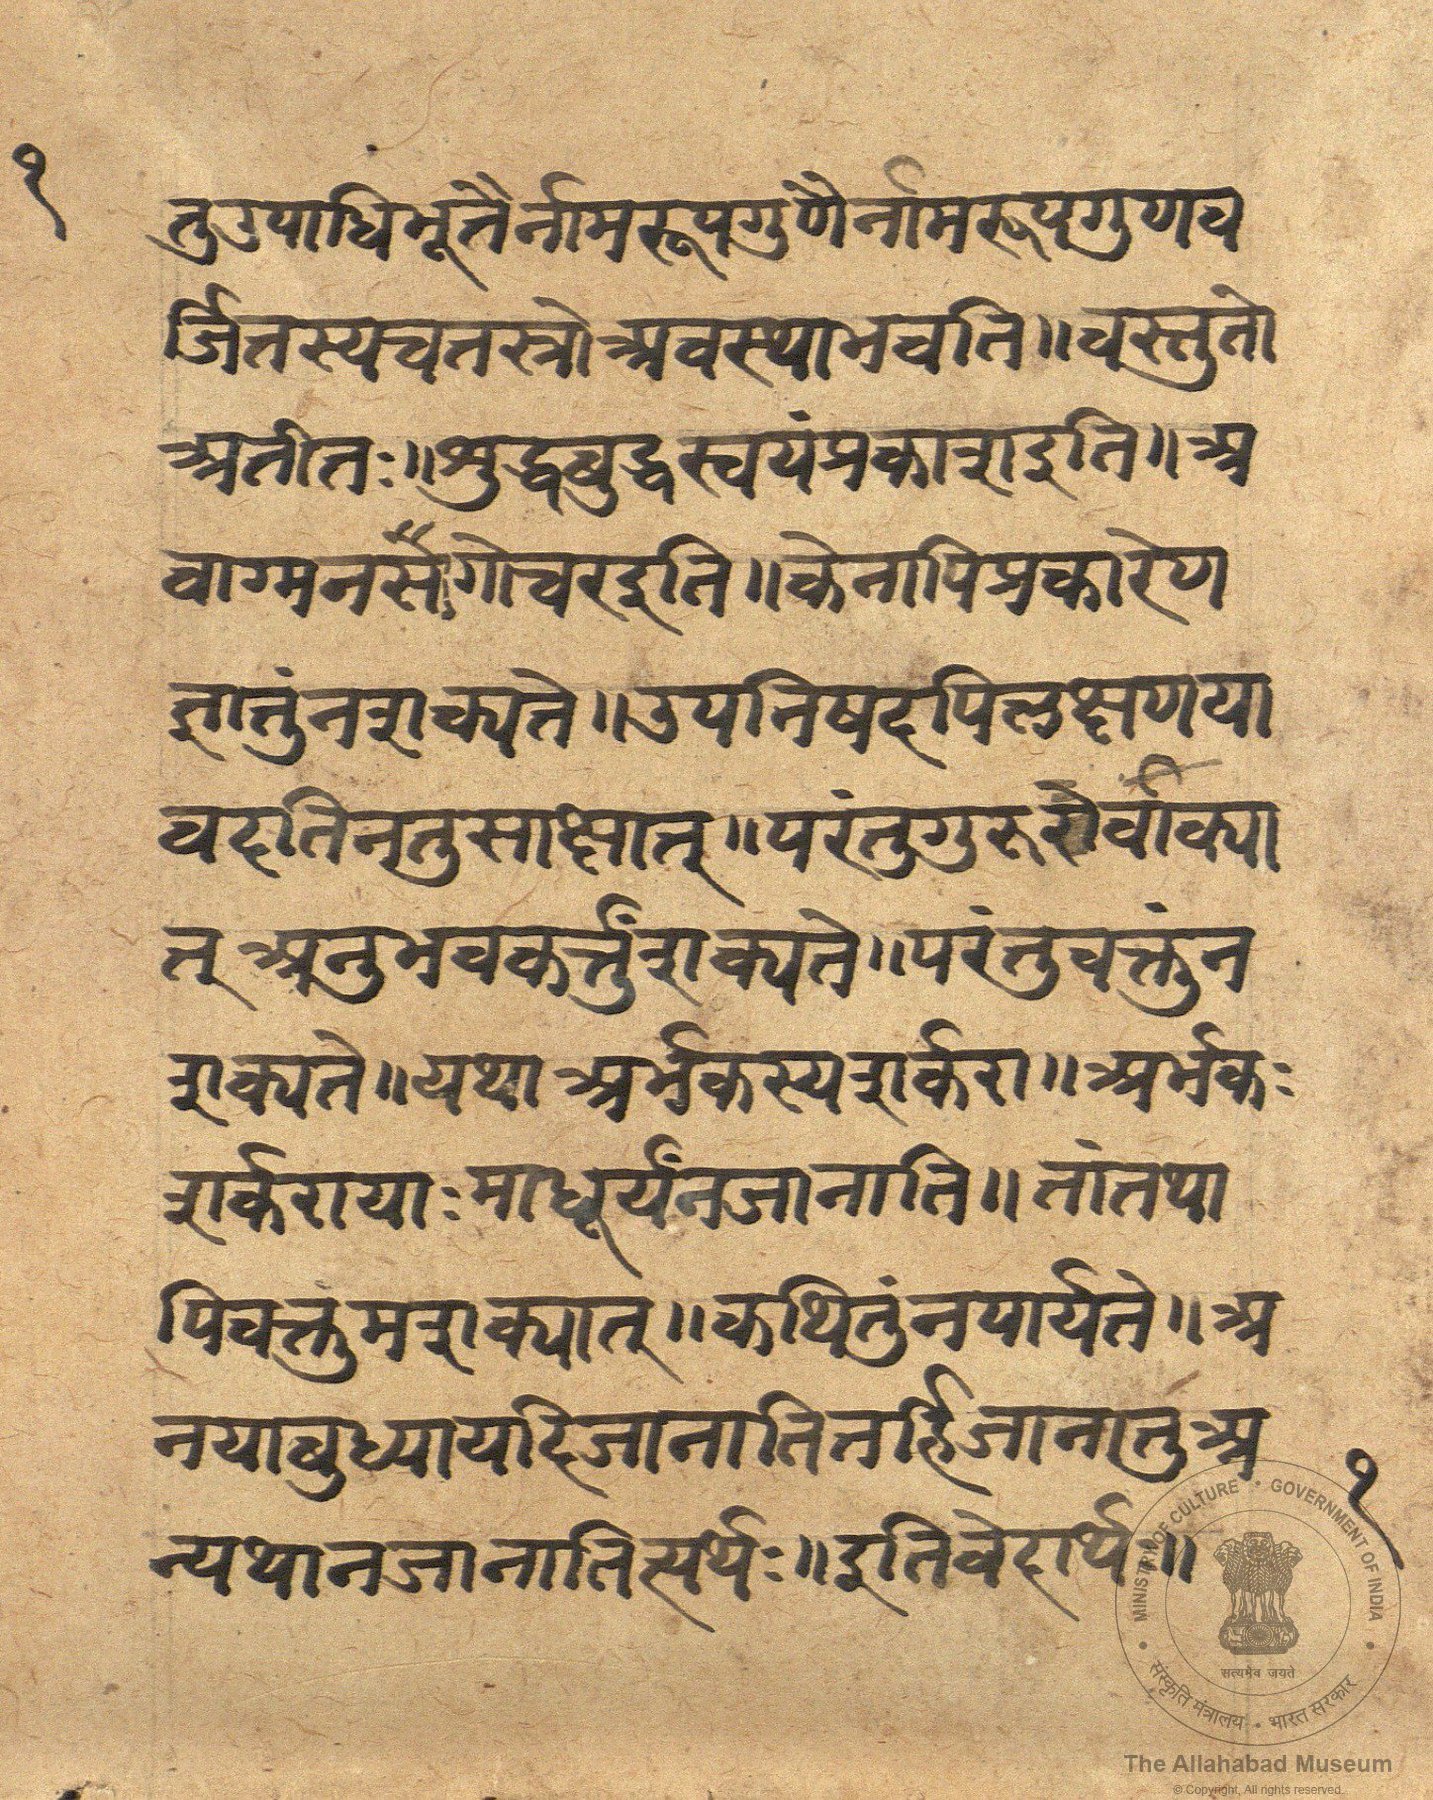 १
तुउपाधिभूतैर्नामरूपगुणैर्नामरूपगुणव
र्जितस्यचतस्त्रोअवस्थाभवति॥वस्तुतो
अतीतः॥शुद्धबुद्धस्वयंप्रकाशइति॥अ
वाग्मनसैगोचरइति॥केनापिप्रकारेण
ज्ञातुंनशक्यते॥उपनिषदपिलक्षणया
वदतिनतुसाक्षात्॥परंतुगुरु
त्अनुभवकर्त्तुंशक्यते॥परंतुवक्तुंन
शक्यते॥यथाअर्भकस्यशर्करा॥अर्भकः
शर्करायाःमाधूर्यंनजानाति॥तांतथा
पिवक्तुमशक्यात्॥कथितुंनपार्यते॥अ
नयाबुध्यायदिजानातितर्हिजानातुअ
न्यथानजानातित्यर्थः॥इतिवेदार्थ॥
१
MINISTRY OF CULTURE • GOVERNMENT OF INDIA
सत्यमेव जयते
संस्कृति मंत्रालय • भारत सरकार
The Allahabad Museum
© Copyright, All rights reserved.